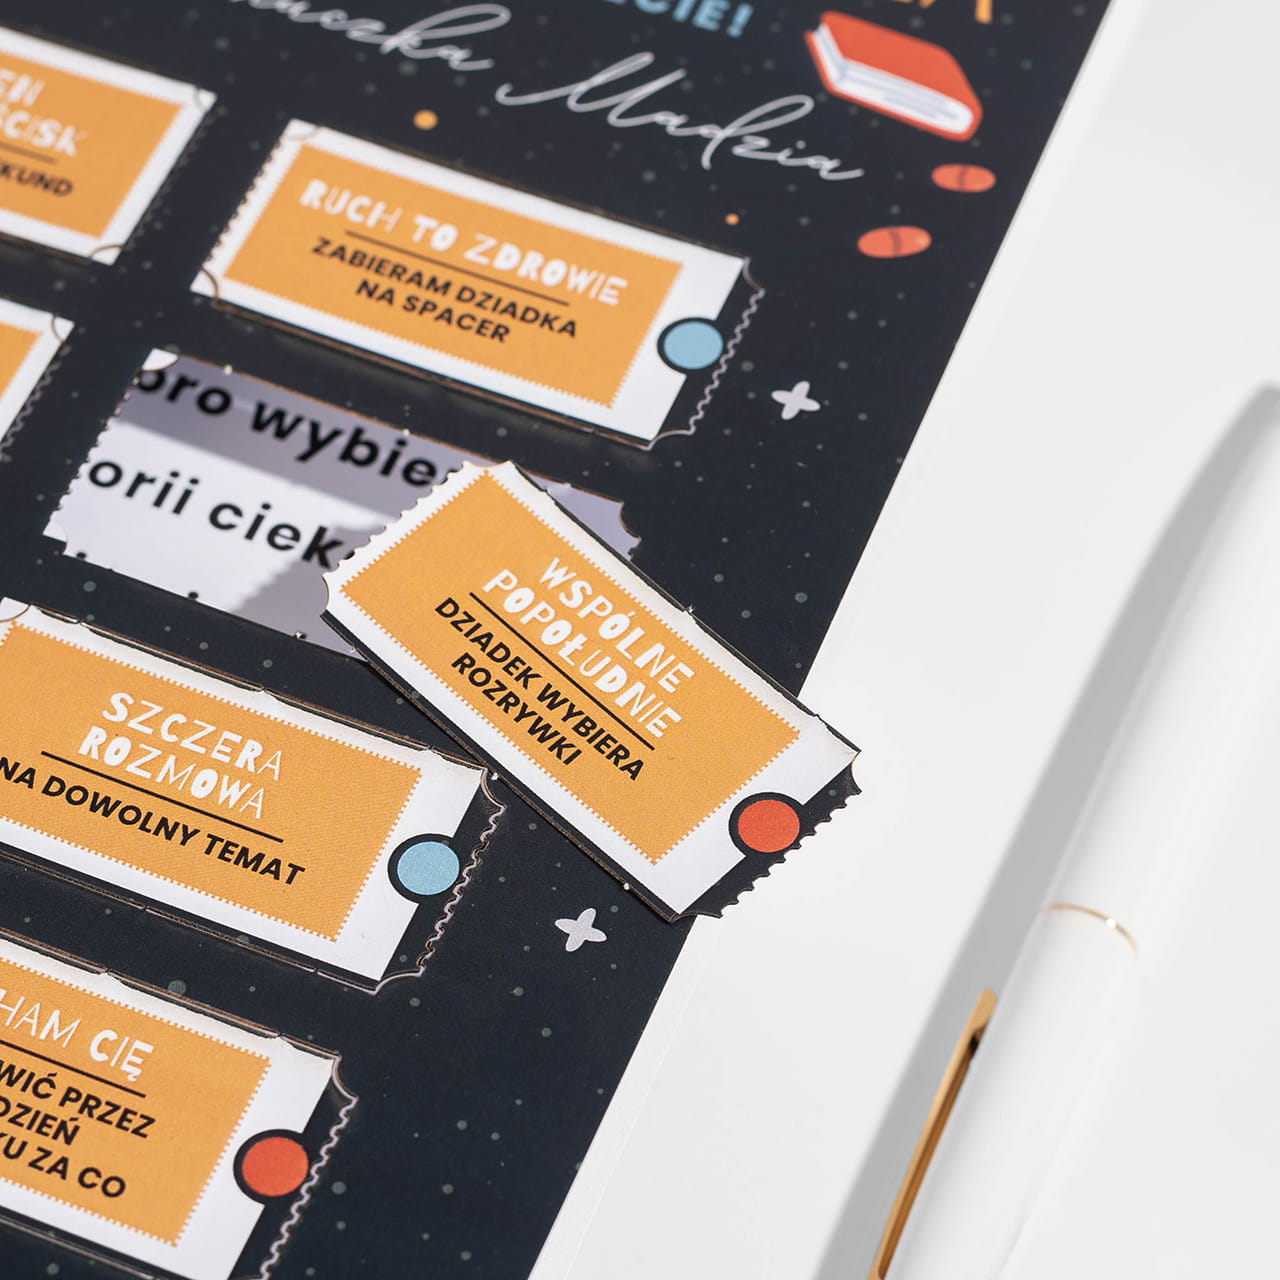 Madzia
RUCH TO ZDROWIE
ZABIERAM DZIADKA
NA SPACER
wybie
orii ciek
WSPÓLNE
POPOŁUDNIE
DZIADEK WYBIERA
ROZRYWKI
SZCZERA
ROZMOWA
NA DOWOLNY TEMAT
CIĘ
PRZEZ
DZIEŃ
ZA CO